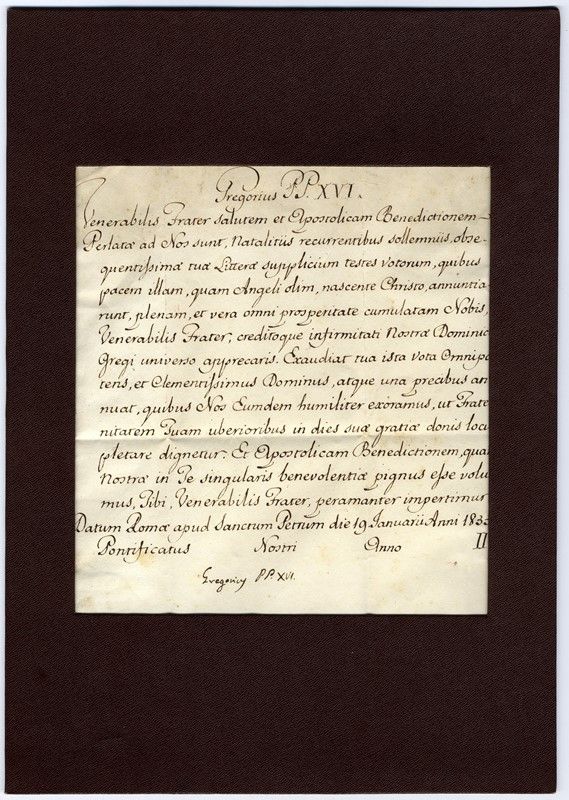 Gregorius PP. XVI.
Venerabilis Frater salutem et Apostolicam Benedictionem—
Perlatæ ad Nos sunt, Natalitiis recurrentibus sollemniis, obse-
quentissimæ tuæ Litteræ supplicium testes votorum, quibus
pacem illam, quam Angeli olim, nascente Christo, annuntia
runt, plenam, et vera omni prosperitate cumulatam Nobis,
Venerabilis Frater, creditoque infirmitati Nostræ Dominic
Gregi universo apprecaris. Exaudiat tua ista vota Omnipo
tens, et Clementissimus Dominus, atque una precibus an
nuat, quibus Nos Eumdem humiliter exoramus, ut Frate
nitatem Tuam uberioribus in dies suæ gratiæ donis locu
pletare dignetur. Et Apostolicam Benedictionem, quam
Nostræ in Te singularis benevolentiæ pignus esse volu
mus, Tibi, Venerabilis Frater, peramanter impertimur
Datum Romæ apud Sanctum Petrum die 19 Januarii Anni
Pontificatus Nostri Anno II
Gregorius PP. XVI.